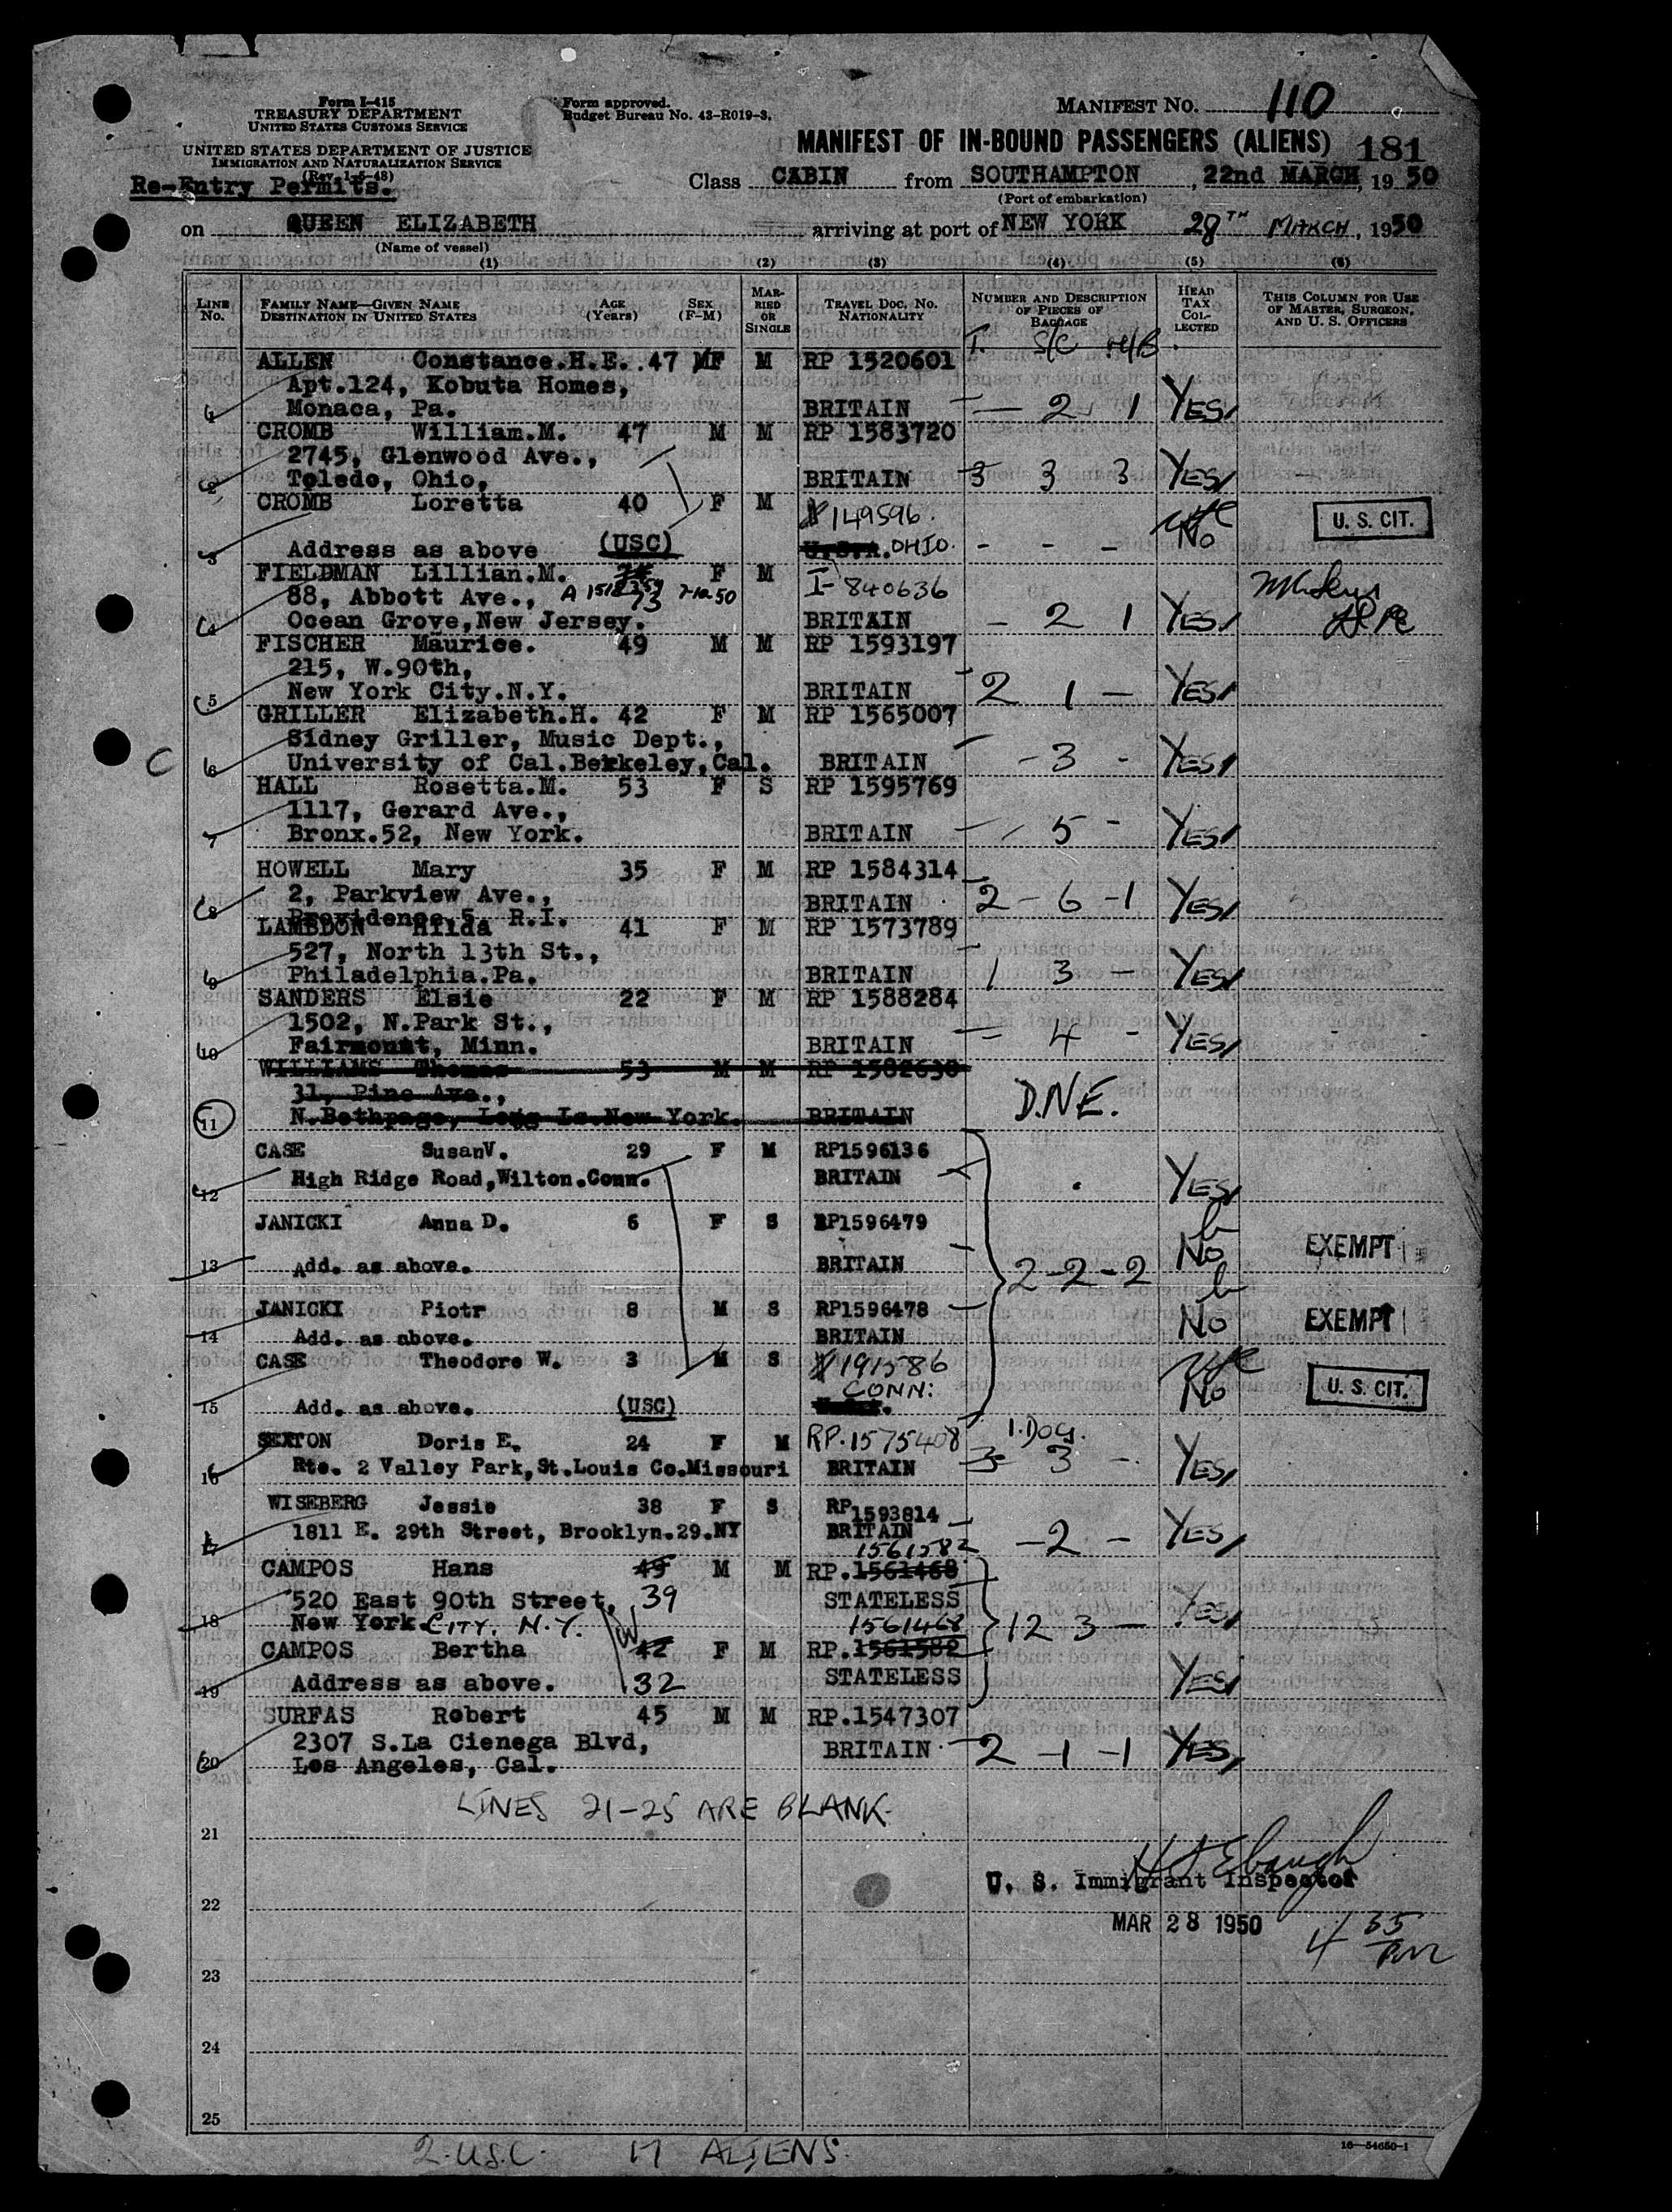 Form I-415
TREASURY DEPARTMENT
UNITED STATES CUSTOMS SERVICE
UNITED STATES DEPARTMENT OF JUSTICE
IMMIGRATION AND NATURALIZATION SERVICE
(Rev. 1-5-48)
Re-Entry Permits.
Form approved.
Budget Bureau No. 43-R019-3.
MANIFEST NO. 110
MANIFEST OF IN-BOUND PASSENGERS (ALIENS) 181
Class CABIN from SOUTHAMPTON, 22nd MARCH, 1950
(Port of embarkation)
on QUEEN ELIZABETH arriving at port of NEW YORK 28TH MARCH, 1950
(Name of vessel)
(1) (2) (3) (4) (5) (6)
LINE NO. FAMILY NAME—GIVEN NAME DESTINATION IN UNITED STATES AGE (Years) SEX (F-M) MARRIED OR SINGLE TRAVEL DOC. NO. NATIONALITY NUMBER AND DESCRIPTION OF PIECES OF BAGGAGE HEAD TAX COLLECTED THIS COLUMN FOR USE OF MASTER, SURGEON, AND U. S. OFFICERS
T. S/C H/B.
ALLEN Constance.H.E. 47 F M RP 1520601
Apt.124, Kobuta Homes,
1 Monaca, Pa. BRITAIN — 2 1 YES
CROMB William.M. 47 M M RP 1583720
2745, Glenwood Ave.,
2 Toledo, Ohio, BRITAIN 3 3 3 YES
CROMB Loretta 40 F M # 149596. U. S. CIT.
3 Address as above (USC) U.S.A. OHIO. - - - No
FIELDMAN Lillian.M. F M I-840636
88, Abbott Ave., 73
4 Ocean Grove,New Jersey. BRITAIN - 2 1 YES
FISCHER Maurice. 49 M M RP 1593197
215, W.90th,
5 New York City.N.Y. BRITAIN 2 1 — YES
GRILLER Elizabeth.H. 42 F M RP 1565007
Sidney Griller, Music Dept.,
C 6 University of Cal.Berkeley,Cal. BRITAIN - 3 - YES
HALL Rosetta.M. 53 F S RP 1595769
1117, Gerard Ave.,
7 Bronx.52, New York. BRITAIN - 5 - YES
HOWELL Mary 35 F M RP 1584314
8 2, Parkview Ave., BRITAIN 2 - 6 - 1 YES
Providence.5, R.I.
LAMBDON Hilda 41 F M RP 1573789
527, North 13th St.,
9 Philadelphia.Pa. BRITAIN 1 3 — YES
SANDERS Elsie 22 F M RP 1588284
1502, N.Park St.,
10 Fairmount, Minn. BRITAIN - 4 - YES
WILLIAMS Thomas 53 M M RP 1582630
31, Pine Ave., D.N.E.
11 N.Bethpage, Long Is.New York. BRITAIN
CASE SusanV. 29 F M RP1596136
12 High Ridge Road,Wilton.Conn. BRITAIN YES
JANICKI Anna D. 6 F S RP1596479
13 Add. as above. BRITAIN 2-2-2 No EXEMPT
JANICKI Piotr 8 M S RP1596478 No EXEMPT
14 Add. as above. BRITAIN
CASE Theodore W. 3 M S # 191586
CONN: No U. S. CIT.
15 Add. as above. (USC)
SEXTON Doris E. 24 F M RP.1575408 1.DOG.
16 Rte. 2 Valley Park,St.Louis Co.Missouri BRITAIN 3 3 - YES
WISEBERG Jessie 38 F S RP 1593814
17 1811 E. 29th Street, Brooklyn.29.NY BRITAIN -2- YES
1561582
CAMPOS Hans 45 M M RP.1561468
520 East 90th Street, 39 STATELESS YES
18 New York CITY. N.Y. 1561468 12 3 —
CAMPOS Bertha 42 F M RP.1561582
19 Address as above. 32 STATELESS YES
SURFAS Robert 45 M M RP.1547307
2307 S.La Cienega Blvd, BRITAIN 2 -1 -1 YES
20 Los Angeles, Cal.
LINES 21-25 ARE BLANK.
21
U. S. Immigrant Inspector
22
MAR 28 1950
4 35 PM
23
24
25
16—54650-1
2.USC. 17 ALIENS.